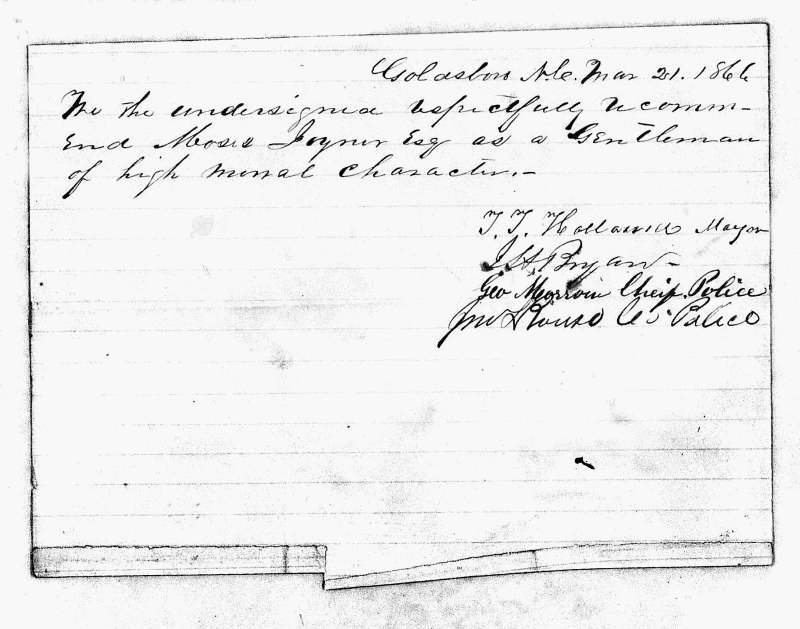 Goldsboro N.C. Mar 21. 1866
We the undersigned respectfully recomm-
end Moses Joyner Esq as a Gentleman
of high moral character.-
T. T. Hollowell Mayor
J. H. Bryan
Geo Morrow Chief. Police
Jno Rouse Police